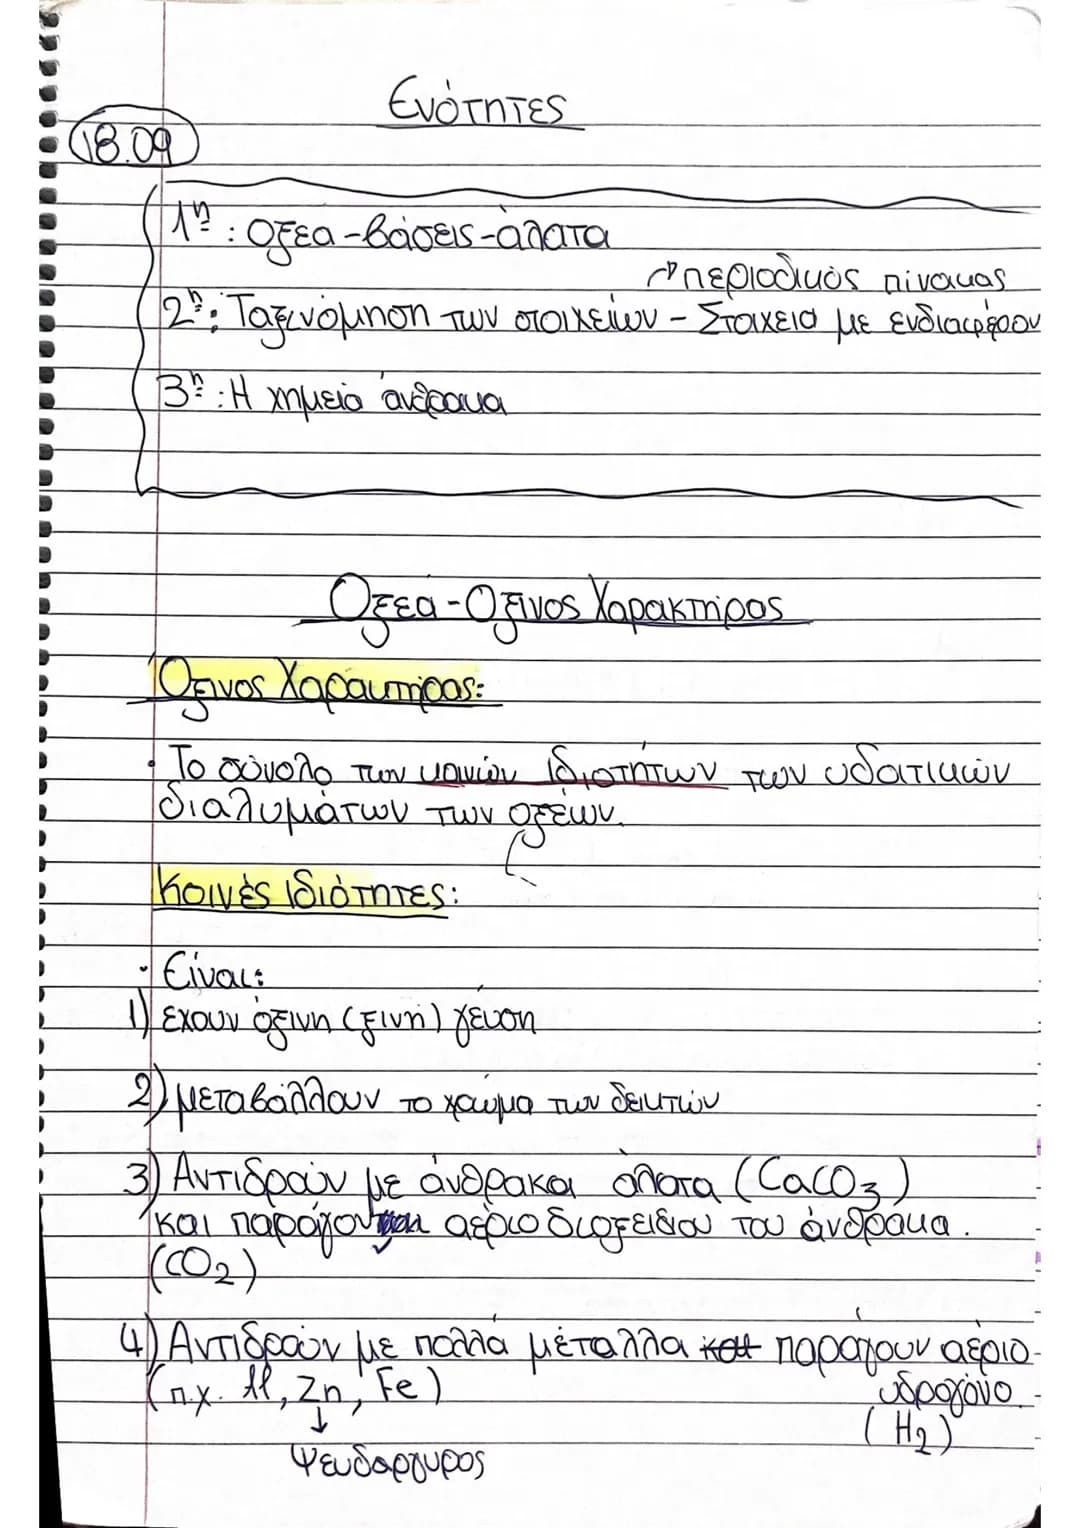 Ενότητες
18.09
1η: Οξέα-βάσεις-άλατα
περιοδικός πίνακας
2η: Ταξινόμηση των στοιχείων - Στοιχεία με ενδιαφέρον
3η: Η χημεία άνθρακα
Οξέα-Όξινος Χαρακτήρας
Όξινος Χαρακτήρας:
· Το σύνολο των κοινών ιδιοτήτων των υδατικών
διαλυμάτων των οξέων.
Κοινές ιδιότητες:
· Είναι:
1) έχουν όξινη (ξινή) γεύση
2) μεταβάλλουν το χρώμα των δεικτών
3) Αντιδρούν με άνθρακα άλατα (CaCO3)
και παράγουν αέριο διοξείδιου του άνθρακα.
(CO2)
4) Αντιδρούν με πολλά μέταλλα και παράγουν αέριο
(π.χ. Al, Zn, Fe) υδρογόνο.
↓ (H2)
Ψευδάργυρος